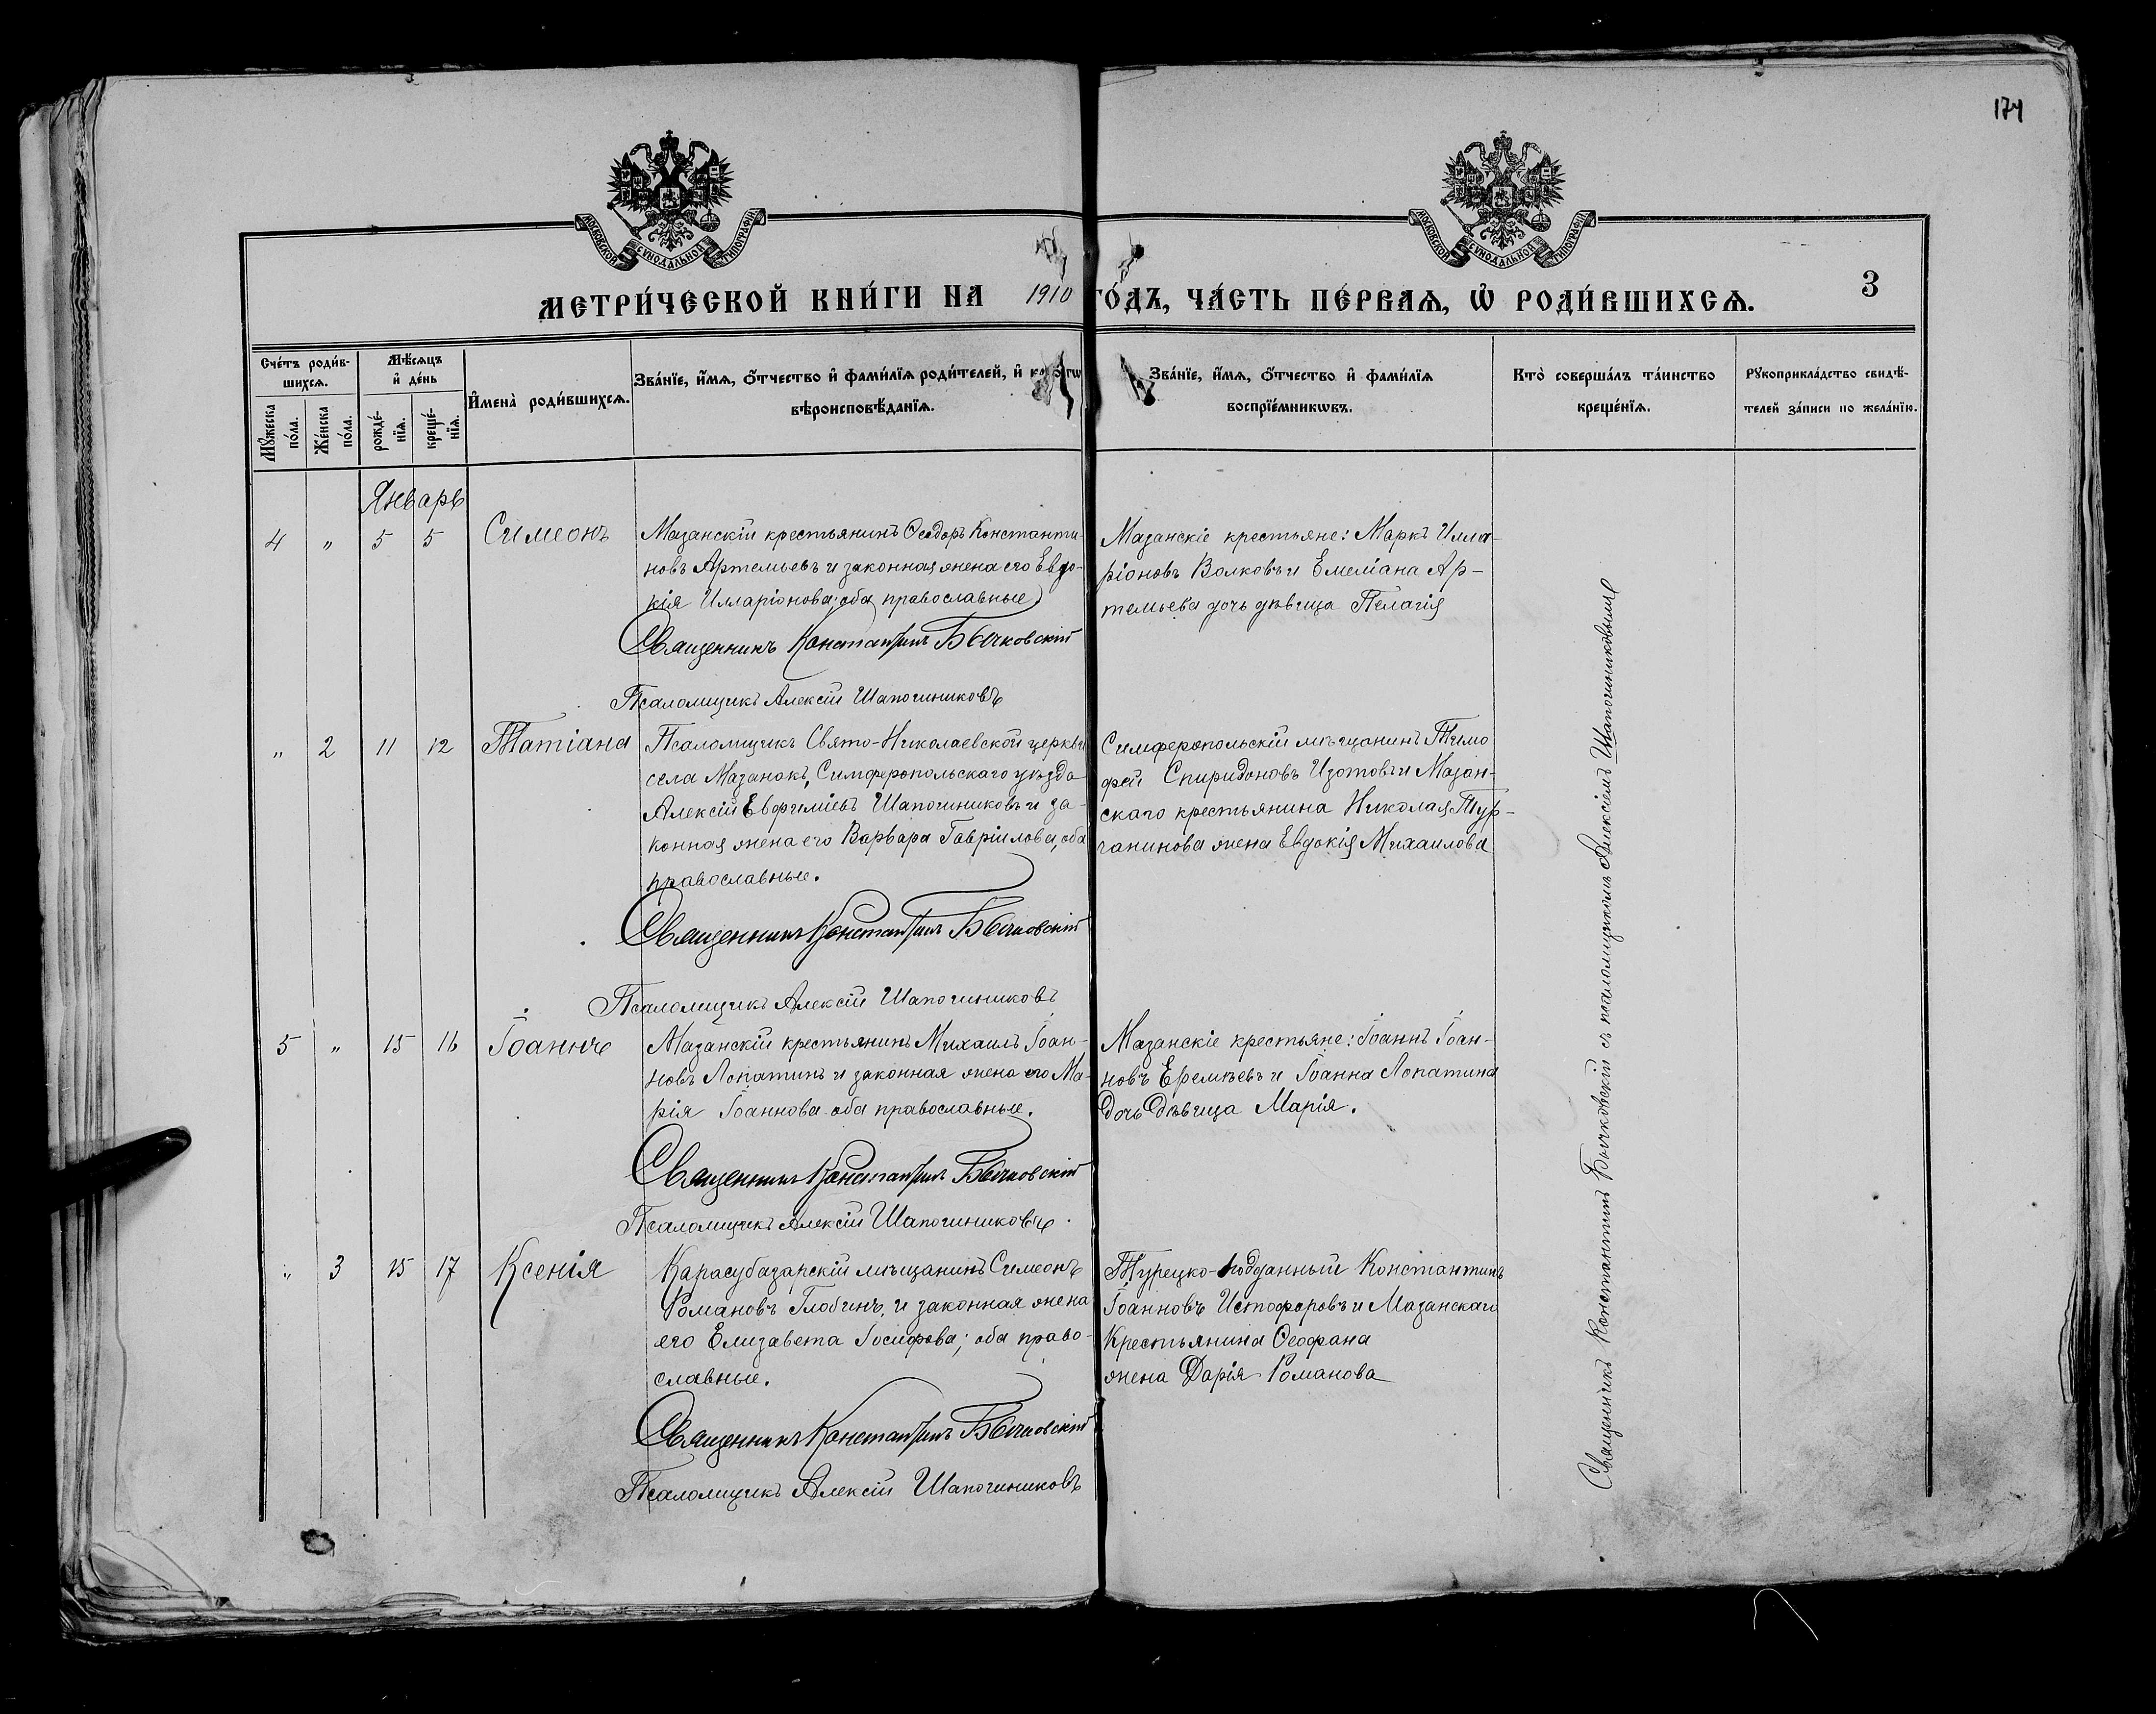 174
МОСКОВСКОЙ СУНОДАЛЬНОЙ ТИПОГРАФІИ
МОСКОВСКОЙ СУНОДАЛЬНОЙ ТИПОГРАФІИ
3
МЕТРИ́ЧЕСКОЙ КНИ́ГИ НА 1910 ГО́ДЪ, ЧА́СТЬ ПЕ́РВАѦ, Ѡ҆ РОДИ́ВШИХСѦ.
Сче́тъ роди́в-
шихсѧ.
Мꙋ́жеска по́ла.
Же́нска по́ла.
Мѣ́сѧцъ
и҆ де́нь
рожде́-
нїѧ.
креще́-
нїѧ.
И҆мена̀ роди́вшихсѧ.
Зва́нїе, и҆́мѧ, ѻ҆́тчество и҆ фамѝлїѧ роди́телей, и҆
вѣроисповѣ́данїѧ.
Зва́нїе, и҆́мѧ, ѻ҆́тчество и҆ фамѝлїѧ
воспрїе́мникѡвъ.
Кто̀ соверша́лъ та́инство
креще́нїѧ.
Рꙋкоприкла́дство свидѣ́-
телей за́писи по жела́нїю.
Январь
4 " 5 5 Симеонъ
Мазанскій крестьянинъ Ѳеодоръ Константи-
новъ Артемьевъ и законная жена его Евдо-
кія Илларіонова; оба православные
Священникъ Константинъ Бычковскій
Псаломщикъ Алексій Шапошниковъ
Мазанскіе крестьяне: Маркъ Илла-
ріоновъ Волковъ и Емеліана Ар-
темьева дочь дѣвица Пелагія
" 2 11 12 Татіана
Псаломщикъ Свято-Николаевской церкви
села Мазанокъ, Симферопольскаго уѣзда
Алексій Евфиміевъ Шапошниковъ и за-
конная жена его Варвара Гавріилова, оба
православные.
Священникъ Константинъ Бычковскій
Псаломщикъ Алексій Шапошниковъ
Симферопольскій мѣщанинъ Тимо
фей Спиридоновъ Изотовъ и Мазан-
скаго крестьянина Николая Тур-
чанинова жена Евдокія Михаилова
5 " 15 16 Іоаннъ
Мазанскій крестьянинъ Михаилъ Іоан-
новъ Лопатинъ и законная жена его Ма-
рія Іоаннова оба православные.
Священникъ Константинъ Бычковскій
Псаломщикъ Алексій Шапошниковъ.
Мазанскіе крестьяне: Іоаннъ Іоан-
новъ Еремѣевъ и Іоанна Лопатина
дочь дѣвица Марія.
" 3 15 17 Ксенія
Карасубазарскій мѣщанинъ Симеонъ
Романовъ Глобинъ, и законная жена
его Елизавета Іосифова; оба право-
славные.
Священникъ Константинъ Бычковскій
Псаломщикъ Алексій Шапошниковъ
Турецко-подданный Константинъ
Іоанновъ Истофоровъ и Мазанскаго
Крестьянина Ѳеофана
жена Дарія Романова
Священникъ Константинъ Бычковскій съ псаломщикомъ Алексіемъ Шапошниковымъ